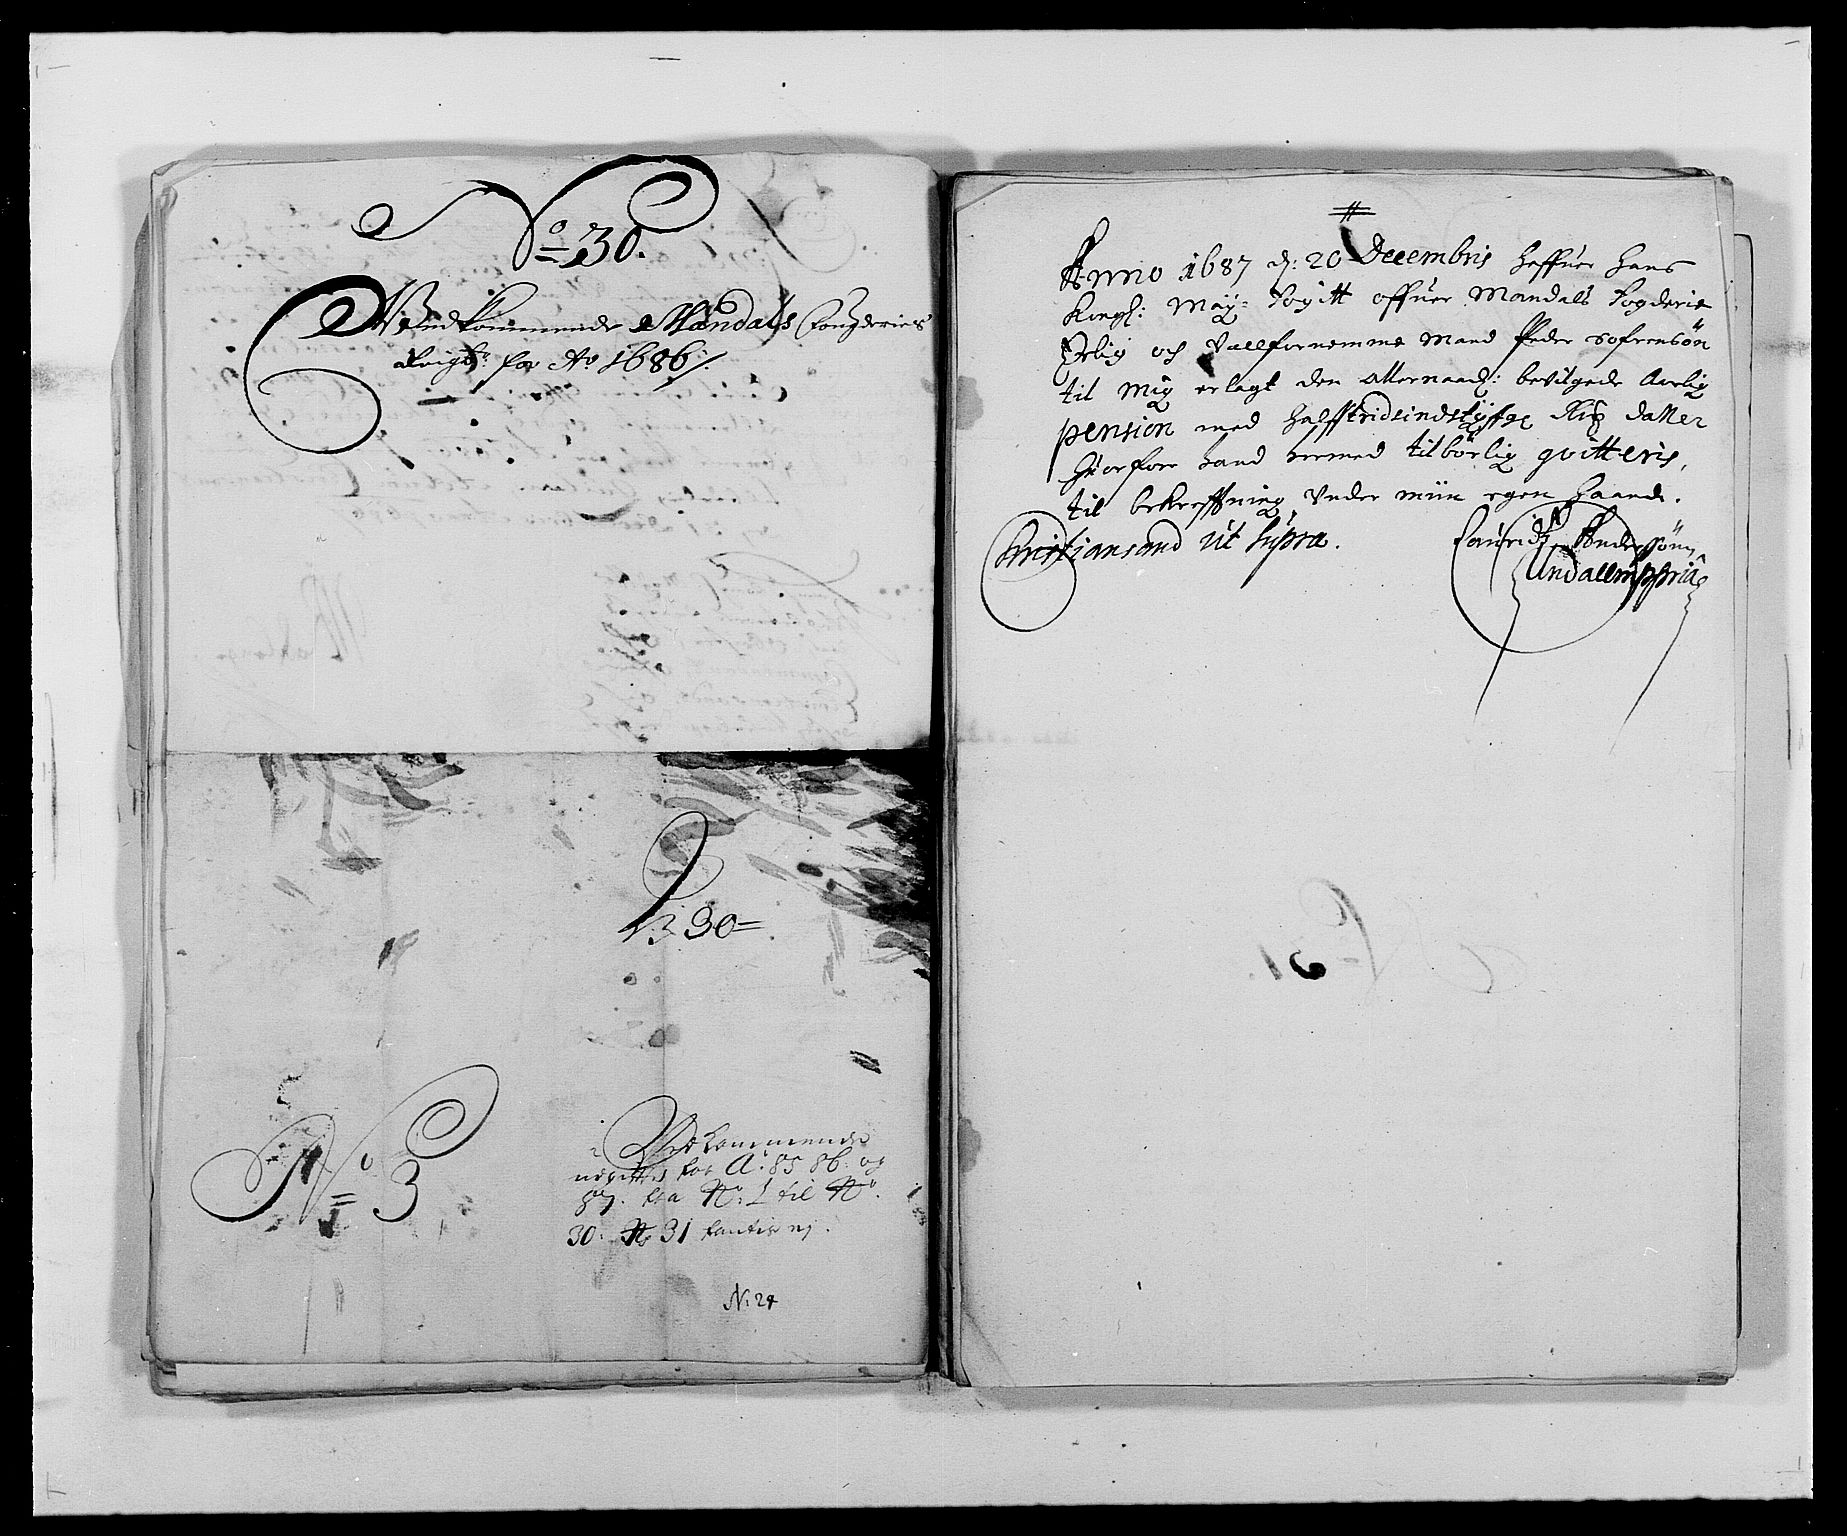 No 30.
Vedkommende Mandals Fougderies
Regsk: for Ao 1686/.
30=
No 3
Vedkommende
udgifter for Ao: 85 86: og
87. fra No: 1 til No.
30: No 31 fantis ej.
N: 24
Anno 1687 d: 20 Decembris haffuer hans
Kongl: May: Fogitt offuer Mandals Fogderie
Erlig och Vellfornemme Mand Peder Sofrensön
til mig erlagt den allernaad: bevilgede Aarlig
pension med halfftridsindstyffge Rix daller
huorfore hand hermed tilbörlig qvitteris,
til bekrefftning under min egen haand.
Christiansand ut supra.
Lauridz Anderssönn
Undall mppria
No 31.